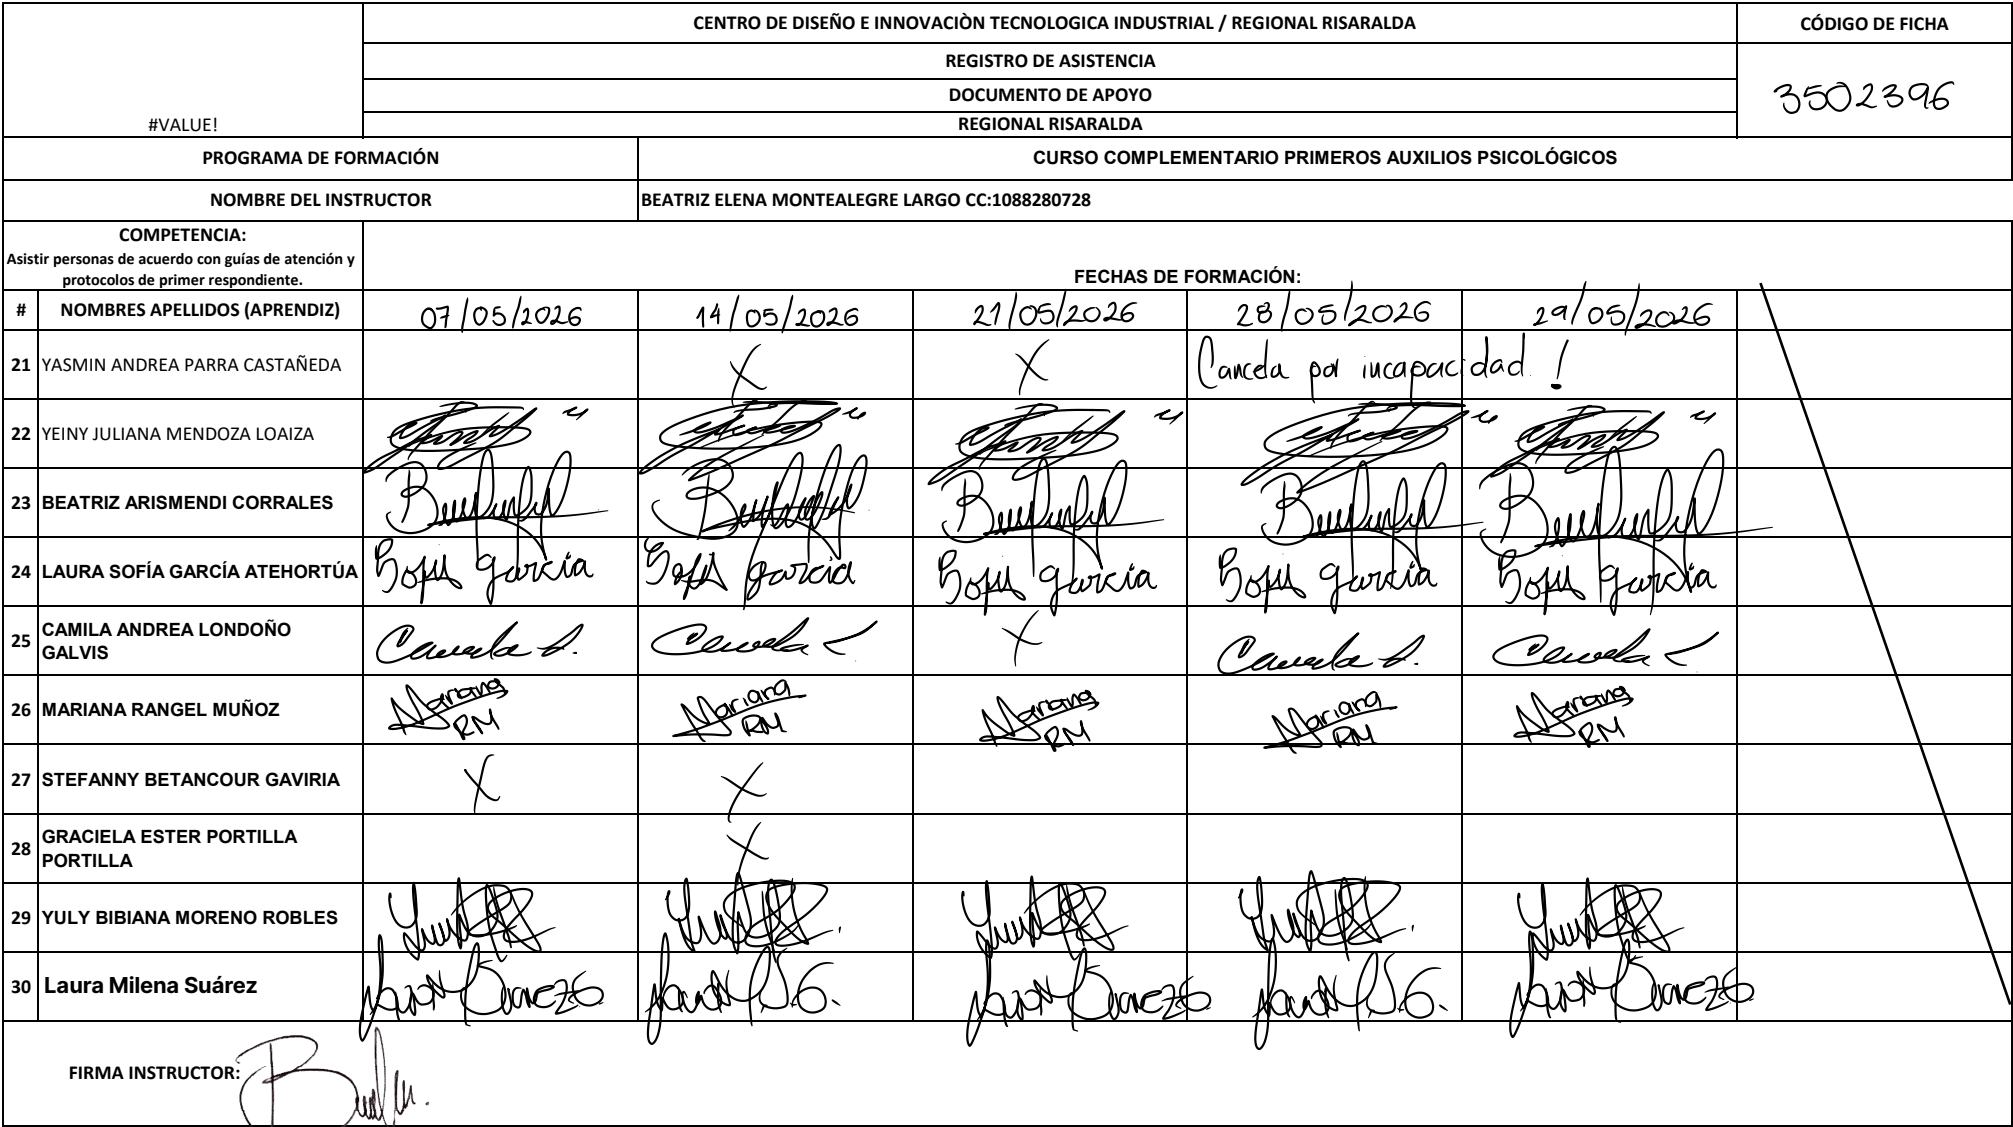 CENTRO DE DISEÑO E INNOVACIÒN TECNOLOGICA INDUSTRIAL / REGIONAL RISARALDA
CÓDIGO DE FICHA
REGISTRO DE ASISTENCIA
DOCUMENTO DE APOYO
3502396
#VALUE!
REGIONAL RISARALDA
PROGRAMA DE FORMACIÓN
CURSO COMPLEMENTARIO PRIMEROS AUXILIOS PSICOLÓGICOS
NOMBRE DEL INSTRUCTOR
BEATRIZ ELENA MONTEALEGRE LARGO CC:1088280728
COMPETENCIA:
Asistir personas de acuerdo con guías de atención y
protocolos de primer respondiente.
FECHAS DE FORMACIÓN:
# NOMBRES APELLIDOS (APRENDIZ) 07/05/2026 14/05/2026 21/05/2026 28/05/2026 29/05/2026
21 YASMIN ANDREA PARRA CASTAÑEDA X X Cancela por incapacidad !
22 YEINY JULIANA MENDOZA LOAIZA
23 BEATRIZ ARISMENDI CORRALES
24 LAURA SOFÍA GARCÍA ATEHORTÚA Sofi garcía Sofi garcia Sofi garcía Sofi garcía Sofi garcía
25 CAMILA ANDREA LONDOÑO
GALVIS
Camila Camila X Camila Camila
26 MARIANA RANGEL MUÑOZ Mariana RM Mariana RM Mariana RM Mariana RM Mariana RM
27 STEFANNY BETANCOUR GAVIRIA X X
28 GRACIELA ESTER PORTILLA
PORTILLA
X
29 YULY BIBIANA MORENO ROBLES
30 Laura Milena Suárez
FIRMA INSTRUCTOR: